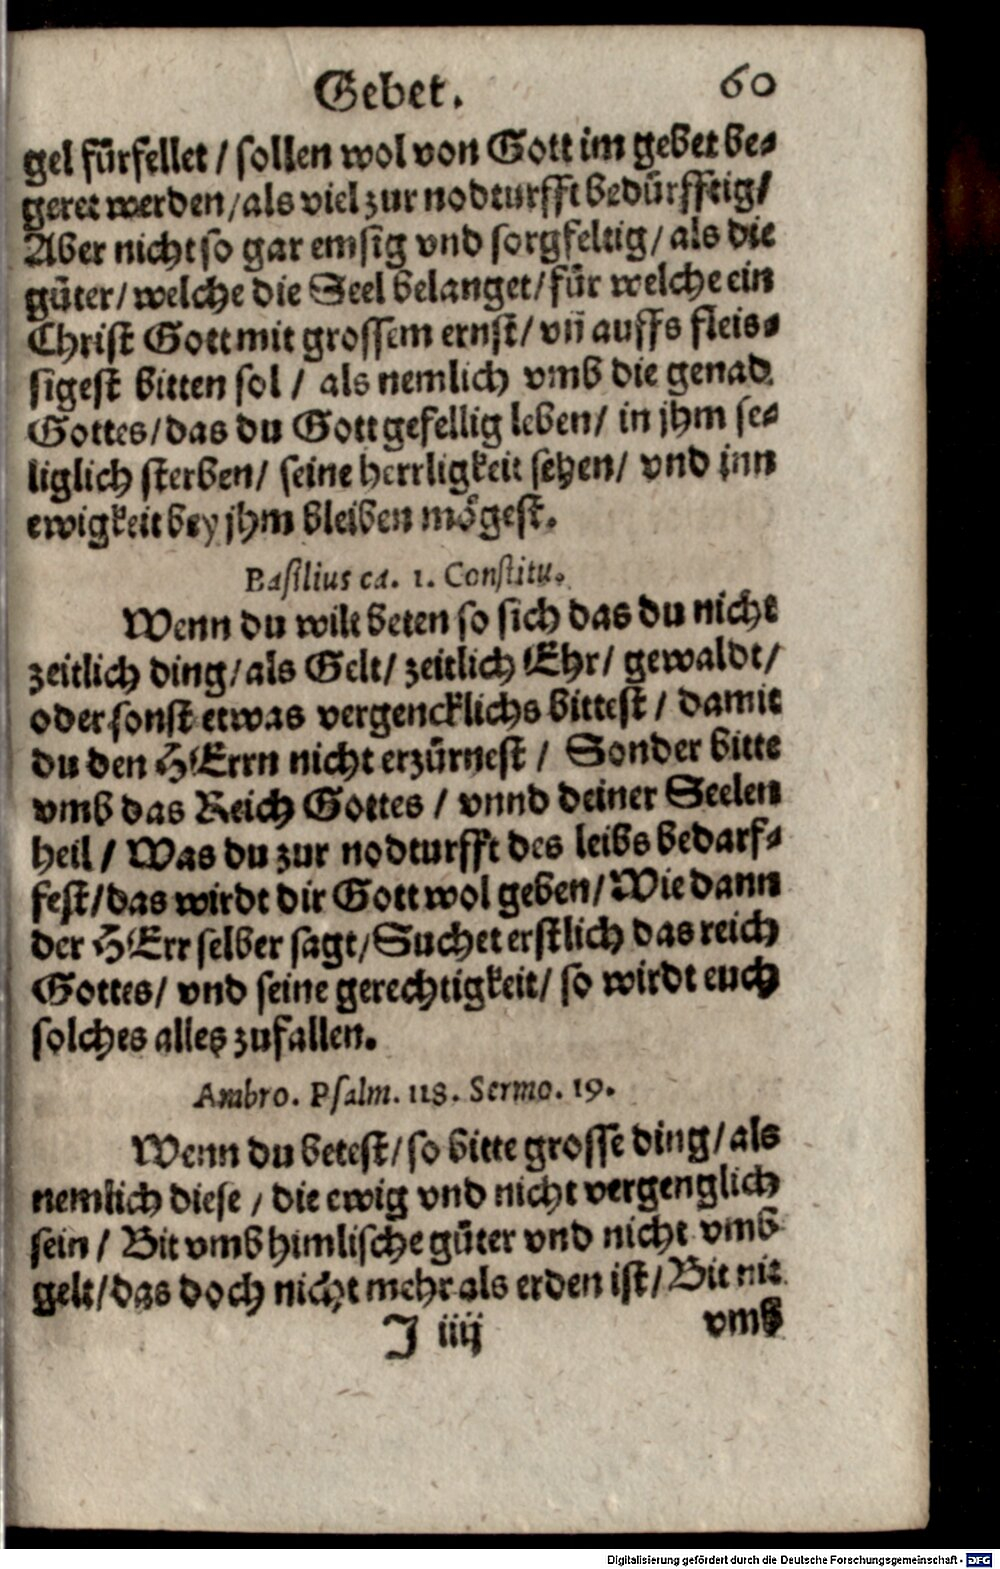 Gebet. 60
gel fürfellet / sollen wol von Gott im gebet be-
geret werden / als viel zur nodturfft bedürfftig /
Aber nicht so gar emsig vnd sorgfeltig / als die
güter / welche die Seel belanget / für welche ein
Christ Gott mit grossem ernst / vñ auffs fleis-
sigest bitten sol / als nemlich vmb die genad
Gottes / das du Gott gefellig leben / in jhm se-
liglich sterben / seine herrligkeit sehen / vnd jnn
ewigkeit bey jhm bleiben mögest.
Basilius ca. 1. Constitu.
Wenn du wilt beten so sich das du nicht
zeitlich ding / als Gelt / zeitlich Ehr / gewaldt /
oder sonst etwas vergencklichs bittest / damit
du den HErrn nicht erzürnest / Sonder bitte
vmb das Reich Gottes / vnnd deiner Seelen
heil / Was du zur nodturfft des leibs bedarf-
fest / das wirdt dir Gott wol geben / Wie dann
der HErr selber sagt / Suchet erstlich das reich
Gottes / vnd seine gerechtigkeit / so wirdt euch
solches alles zufallen.
Ambro. Psalm. 118. Sermo. 19.
Wenn du betest / so bitte grosse ding / als
nemlich diese / die ewig vnd nicht vergenglich
sein / Bit vmb himlische güter vnd nicht vmb
gelt / das doch nicht mehr als erden ist / Bit nit
J iiij vmb
Digitalisierung gefördert durch die Deutsche Forschungsgemeinschaft - DFG